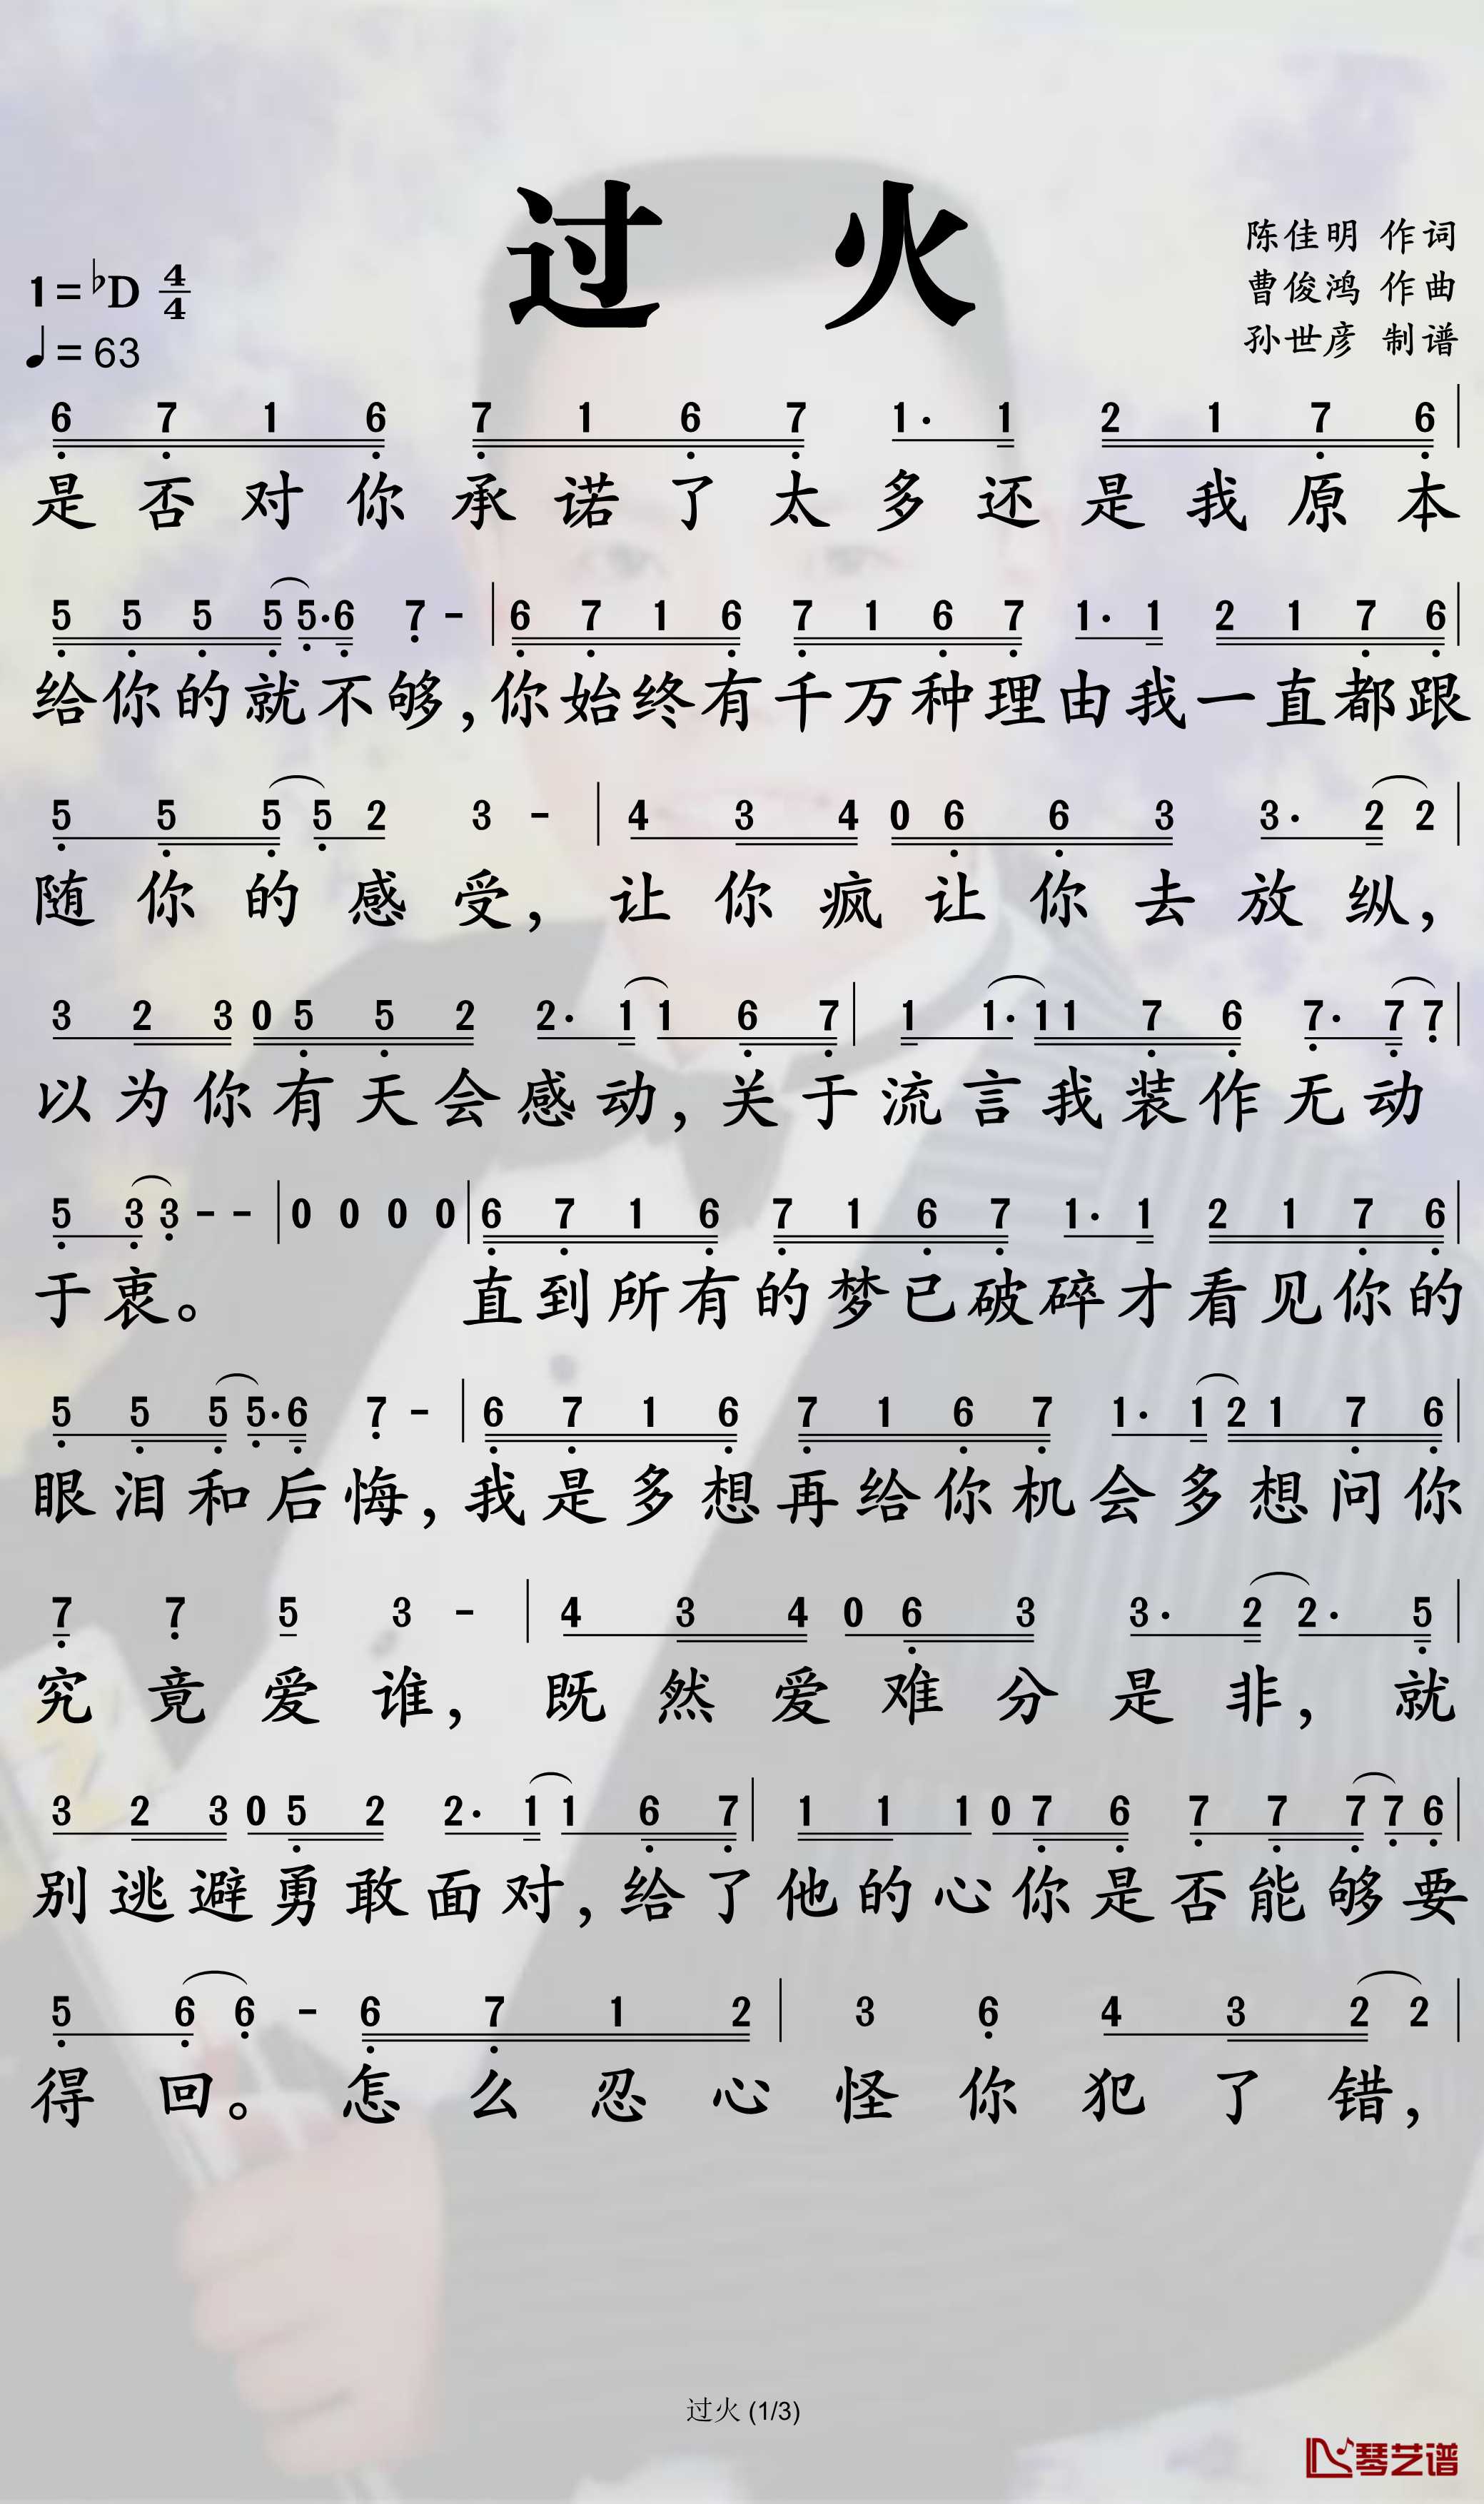 过 火
陈佳明 作词
曹俊鸿 作曲
孙世彦 制谱
1=♭D 4/4
♩=63
6 7 1 6 7 1 6 7 1· 1 2 1 7 6
是否对你承诺了太多还是我原本
5 5 5 5 5·6 7 - 6 7 1 6 7 1 6 7 1· 1 2 1 7 6
给你的就不够,你始终有千万种理由我一直都跟
5 5 5 5 2 3 - 4 3 4 0 6 6 3 3· 2 2
随你的感受,让你疯让你去放纵,
3 2 3 0 5 5 2 2· 1 1 6 7 1 1· 1 1 7 6 7· 7 7
以为你有天会感动,关于流言我装作无动
5 3 3 - - 0 0 0 0 6 7 1 6 7 1 6 7 1· 1 2 1 7 6
于衷。 直到所有的梦已破碎才看见你的
5 5 5 5·6 7 - 6 7 1 6 7 1 6 7 1· 1 2 1 7 6
眼泪和后悔,我是多想再给你机会多想问你
7 7 5 3 - 4 3 4 0 6 3 3· 2 2· 5
究竟爱谁,既然爱难分是非,就
3 2 3 0 5 2 2· 1 1 6 7 1 1 1 0 7 6 7 7 7 7 6
别逃避勇敢面对,给了他的心你是否能够要
5 6 6 - 6 7 1 2 3 6 4 3 2 2
得回。怎么忍心怪你犯了错,
过火 (1/3)
琴艺谱